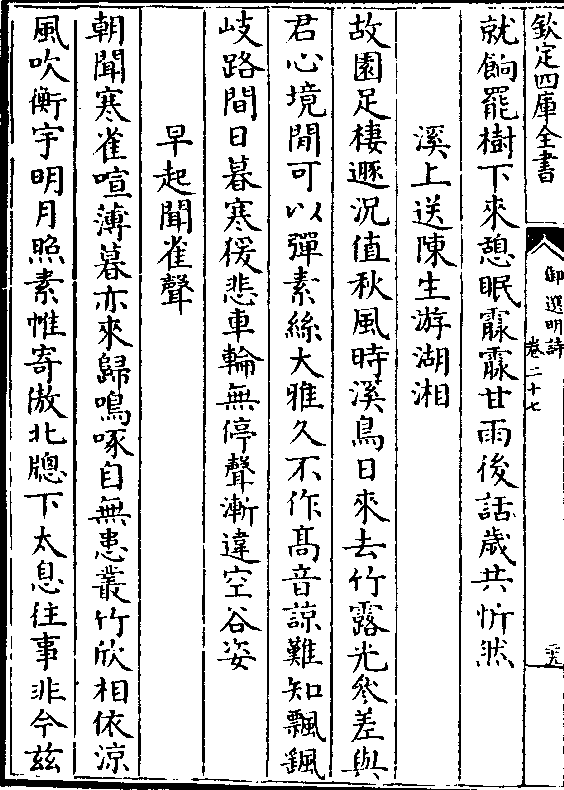 欽定四庫全書
御選明詩
卷二十七
就餉罷樹下來憩眠霢霂甘雨後話歲共忻然
溪上送陳生游湖湘
故園足棲遯況值秋風時溪鳥日來去竹露光參差與
君心境閒可以彈素絲大雅久不作髙音諒難知飄颻
岐路間日暮寒猨悲車輪無停聲漸違空谷姿
早起聞雀聲
朝聞寒雀喧薄暮亦來歸鳴啄自無患叢竹欣相依涼
風吹衡宇明月照素帷寄傲北牕下太息往事非今兹